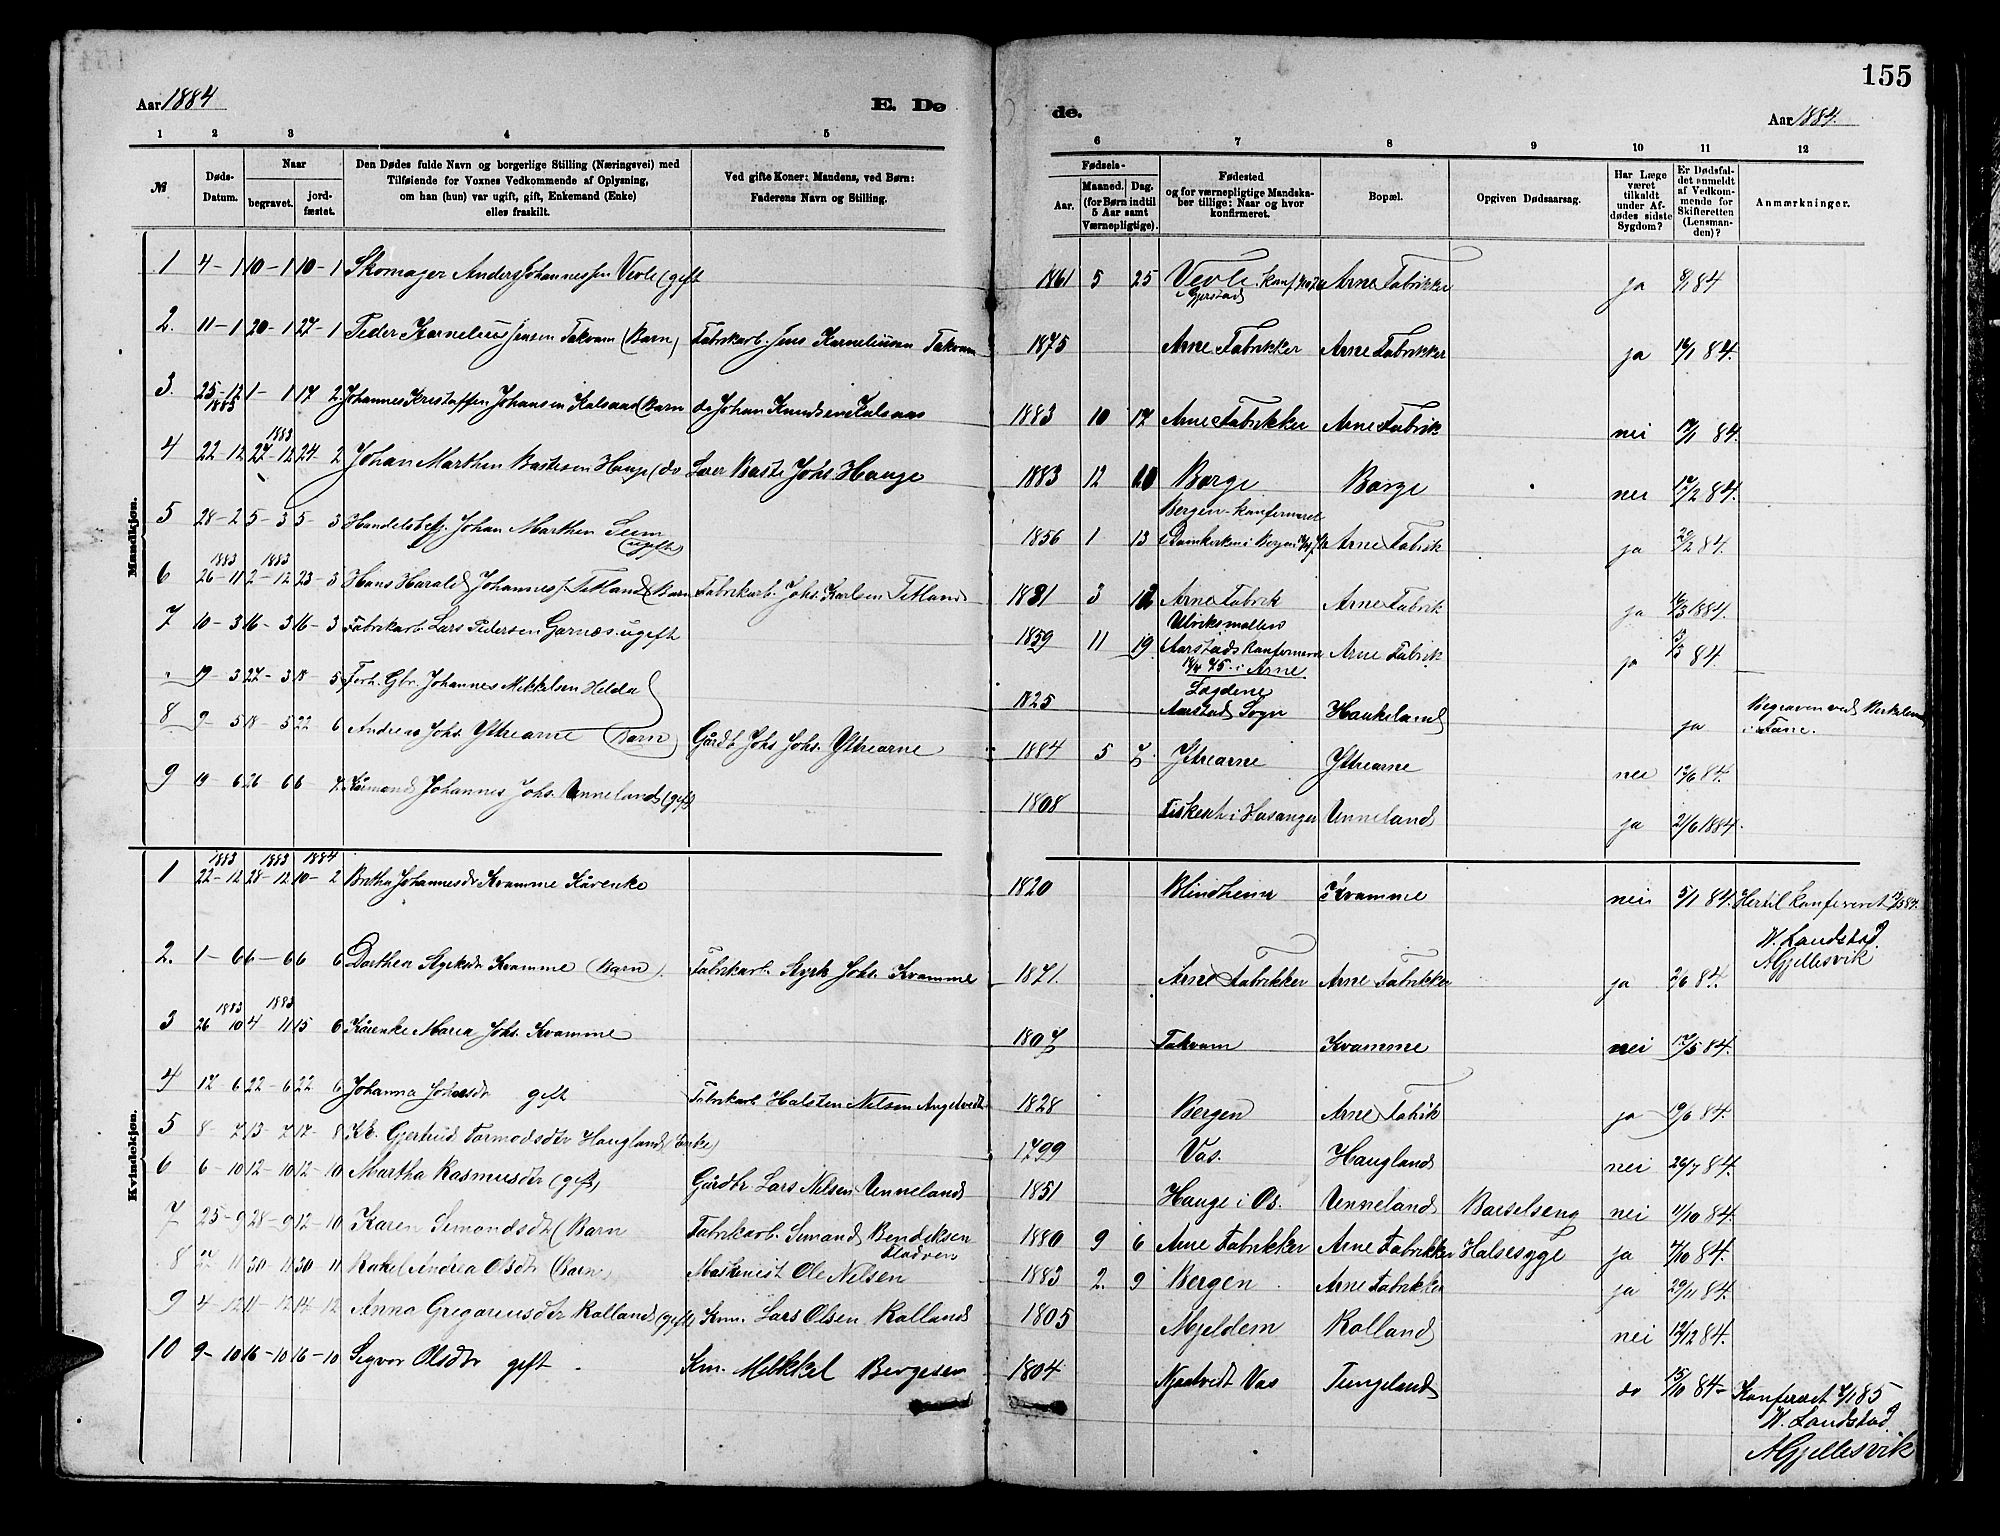 155
Aar 1884
E. Dø
de.
Aar 1884.
1 2 3 4 5
6 7 8 9 10 11 12
№
Døds-Datum.
Naar
begravet.
jord-fæstet.
Den Dødes fulde Navn og borgerlige Stilling (Næringsvei) med
Tilføiende for Voxnes Vedkommende af Oplysning,
om han (hun) var ugift, gift, Enkemand (Enke)
elles fraskilt.
Ved gifte Koner: Mandens, ved Børn:
Faderens Navn og Stilling.
Fødsels-
Aar.
Maaned. Dag.
(for Børn indtil
5 Aar samt
Værnepligtige).
Fødested
og for værnepligtige Mandska-
ber tillige: Naar og hvor
konfirmeret.
Bopæl.
Opgiven Dødsaarsag.
Har Læge
været
tilkaldt
under Af-
dødes sidste
Sygdom?
Er Dødsfal-
det anmeldt
af Vedkom-
mende for
Skifteretten
(Lensman-
den)?
Anmærkninger.
Mandkjøn.
1 4-1 10-1 10-1 Skomager Anders Johannessen Vevle (gift 1861 5 25 Vevle i Gjerstad Arne Fabrikker ja 8/1 84
2. 11-1 20-1 27-1 Peder Kornelius Jensen Takvam (Barn) Fabrikarb. Jens Korneliussen Takvam 1875 Arne Fabrikker Arne Fabrikker ja 84.
3. 25-12 1883 1-1 17 2. Johannes Kristoffen Johansen Kalsaas (Barn do Johan Knudsen Kalsaas 1883 10 17 Arne Fabrikker Arne Fabrik nei 84.
4 22-12 1883 27-12 24-2 Johan Marthen Bastesen Hauge (do Lærer Baste Johs. Hauge 1883 12 Borge Borge nei 84.
5 28-2 5-3 5-3 Handelsbetj. Johan Marthen Seim (ugift) 1856 1 13 Bergen-konfirmeret i Domkirken i Bergen Arne Fabrik ja 84.
6 1883 26-11 1883 2-12 23-3 Hans Harald Johannes. Titland (Barn Fabrikarb. Johs. Karlsen Titland 1881 3 Arne Fabrik Arne Fabrik ja 1884.
7 10-3 16-3 16-3 Fabrikarb. Lars Pedersen Garnæs. ugift 1859 11 19 Ulriksmollen Aarstads Konfirmeret 75. i Arne Arne Fabrik ja 84.
19-3 27-3 18-5 Forh. Gbr. Johannes Mikkelsen Helda 1825 Aarstad Sogn Haukeland ja Begraven ved Birkeland i Fane.
8 9-5 18-5 22 6 Andreas Johs. Yttrearne (Barn) Gårdb Johs Johs. Yttrearne 1884 5 7. Yttrearne Yttrearne nei 84.
9 19 6 26 6 6 7 Kårmand Johannes Johs. Unneland (gift) 1808 i Hosanger Unneland ja 21/6 1884.
Kvindekjøn.
1 1883 22-12 1883 28-12 1884 10-2 Britha Johannesdr Kvamme Kårenke 1820 Blindheim Kvamme nei 5/1 84. Hertil konfereret
W. Landstad.
AGjellesvik
2. 1-6 6-6 6 6 Dorthea Styrksdr Kvamme (Barn). Fabrikarb. Styrk Johs. Kvamme 1871. Arne Fabrikker Arne Fabrikker ja 2/6 84.
3 1883 26 10 1883 4 11 15 6 Kårenke Maria Johs. Kvamme 1807 Takvam Kvamme nei 84.
4 12 6 22-6 22 6 Johanna Johnsdr gift Fabrikarb Halsten Nilsen Angelvedt 1828 Bergen Arne Fabrik ja 19/6 84.
5 8-7 13-7 17-8 Kk. Gjertrud Tormodsdtr Haugland (Enke) 1799 Vos. Haugland nei 26/7 84.
6 6-10 12-10 12-10 Martha Rasmusdtr (gift) Gårdbr Lars Nilsen Unneland 1851 Hauge i Os. Unneland Barselseng nei 11/10 84.
7 25-9 28-9 12-10 Karen Simondsdt (Barn Fabrikarb. Simond Bendiksen Fladven 1880 9 6 Arne Fabrikker Arne Fabrikker Halssyge ja 84.
8 11 30 11 30 11 Rakel Andrea Olsdtr (Barn) Maskinist Ole Nilsen 1883 2. 9 Bergen Arne Fabrikker ja 29/11 84.
9 4-12 11-12 14-12 Anna Gregoriusdtr Rolland (gift) Kmn. Lars Olsen Rolland 1805 Mjeldem Rolland nei 84.
10 9-10 16-10 16-10 Sigvor Olsdtr gift Km. Mikkel Bergesen 1804 Vos Tungeland do 15/10 84 Konfereret 85
W. Landstad.
AGjellesvik